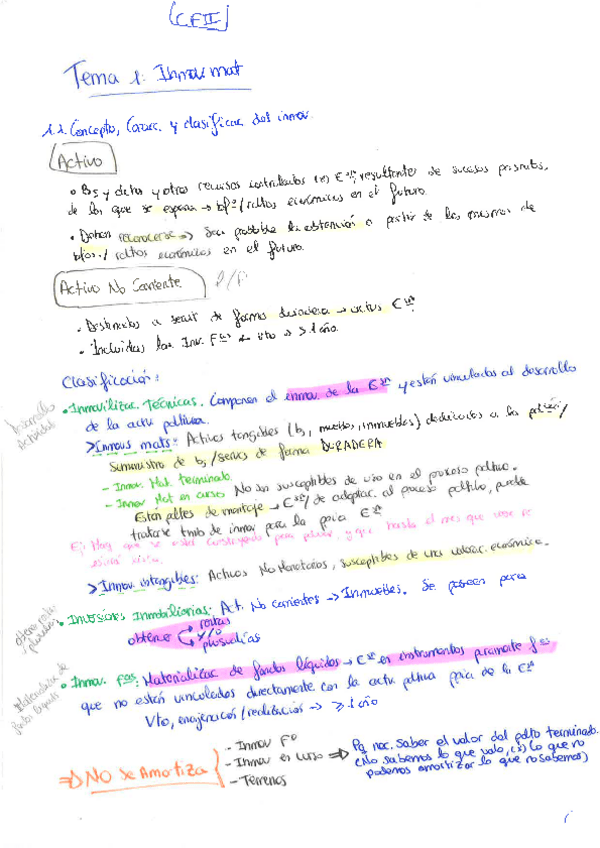 (CFII)
Tema 1: Inmov mat
1.1. Concepto, Carac. y clasificac del inmov.
Activo
• Bs y dchos y otros recursos controlados x Esa, resultantes de sucesos pasados,
de los que se espera → bfos/rdtos económicos en el futuro.
• Deben reconocerse → Sea probable la obtención a partir de los mismos de
bfos./rdtos económicos en el futuro.
Activo No Corriente
• Destinados a servir de forma duradera → Esa
• Incluidas las Inv. Fas vto → > 1 año.
Clasificación:
Desarrollo
Actividad
• Inmoviliz. Técnicas. Componen el inmov. de la Esa y están vinculados al desarrollo
de la activ
> Inmovs mats: Activos tangibles (bs, muebles, inmuebles) dedicados a la
suministro de bs/servcs de forma DURADERA
- Inmov. Mat. terminado.
- Inmov Mat en curso No son susceptibles de uso en el proceso pdtivo.
Están pdtes de montaje → de adaptac. al proceso pdtivo, puede
tratarse tmb de inmov para la pcia Esa
Ej: Hay que se está construyendo para
> Inmov. intangibles: Activos No Monetarios, susceptibles de una valorac. económica.
• Inversiones Inmobiliarias: Act. No corrientes → Inmuebles. Se poseen para
obtener rentas y/o plusvalías
Obtener rentas
plusvalías
• Inmov. Fas: Materializac de fondos líquidos → Esa en instrumentos
que no están vinculados directamente con la activ pdtiva ppia de la Esa
Vto, enagenación/realización → > 1 año
Materializac de
fondos líquidos
⇒ NO SE AMORTIZA
- Inmov Fo
- Inmov en curso ⇒ Pq noc. saber el valor del pdto terminado.
(No sabemos lo que vale, lo que no
podemos amortizar lo que no sabemos)
- Terrenos